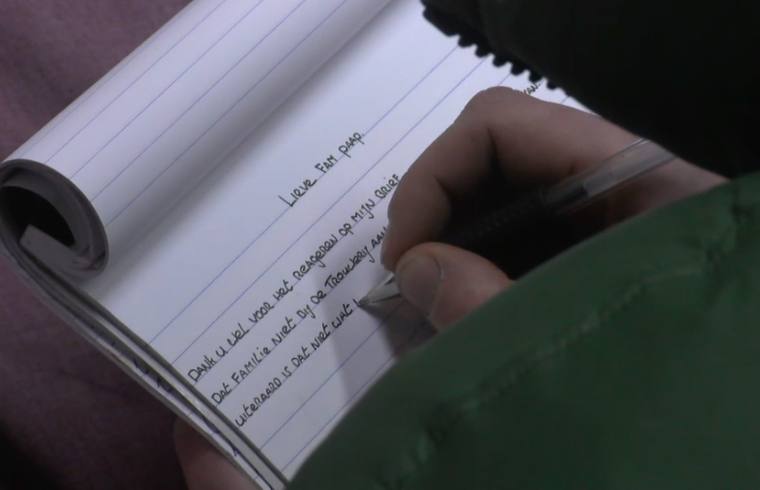 Lieve Fam Paap.
Dank u wel voor het reageren op mijn brief
Dat familie niet bij de trouwerij
uiteraard is dat niet wat